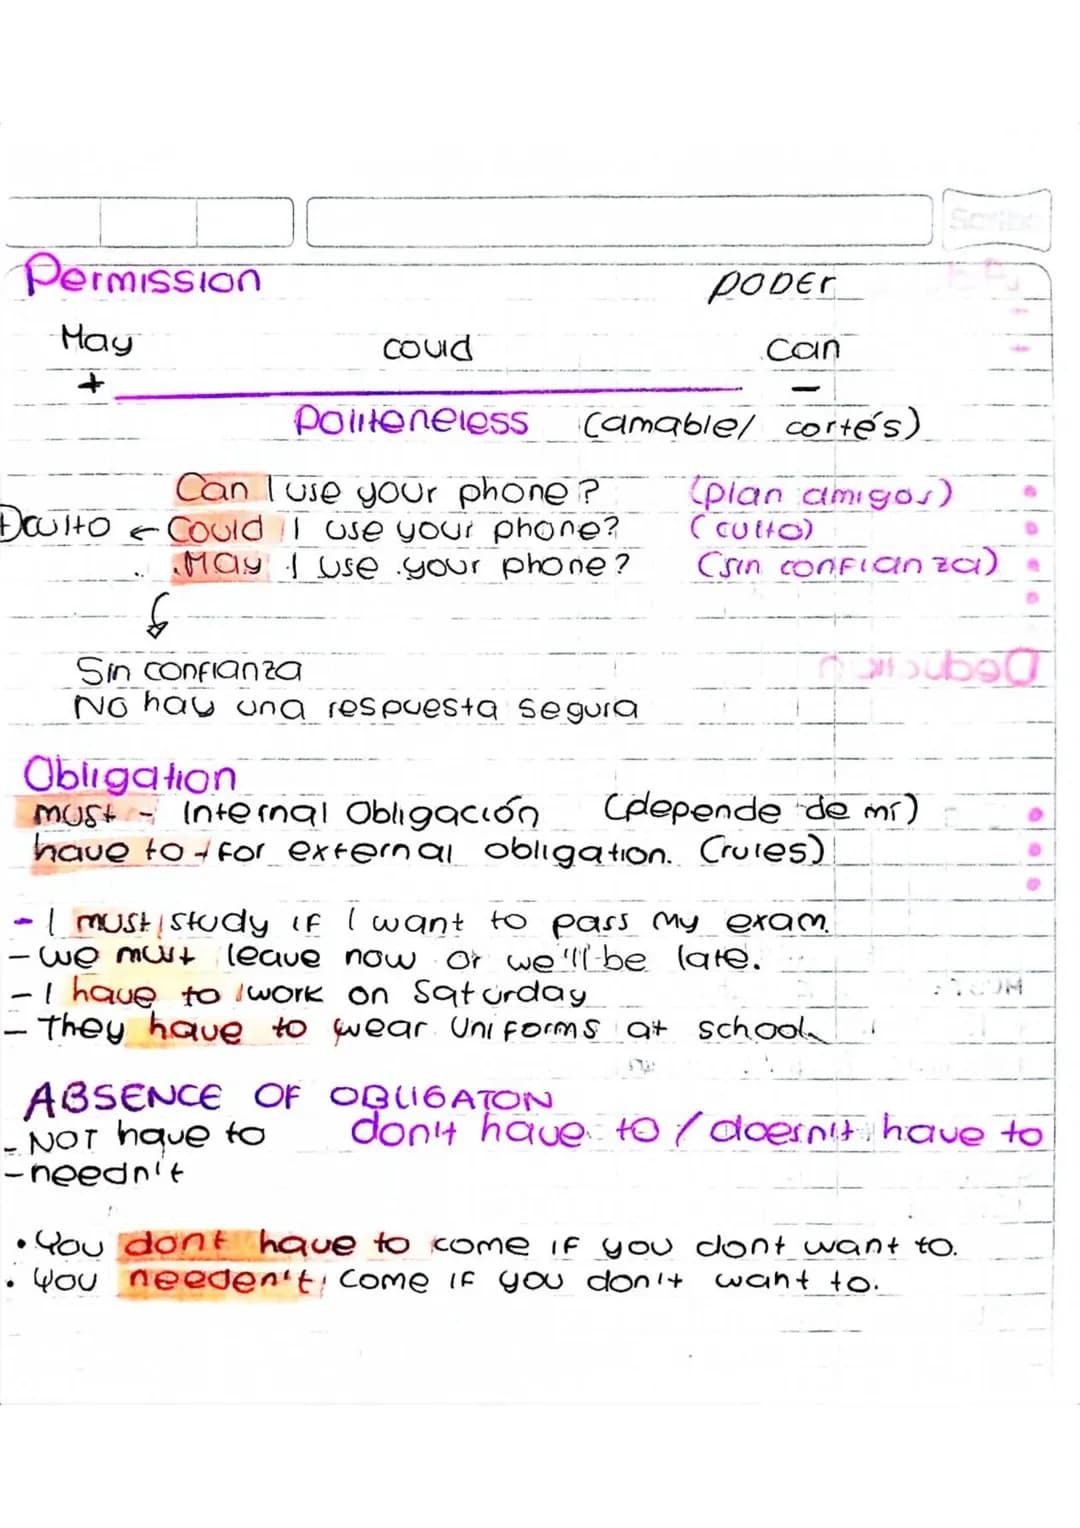 Permission PODEr
May could can
+ -
Politeneless (amable/ cortés)
Can I use your phone? (plan amigos)
← Could I use your phone? (culto)
May I use your phone? (sin confianza)
Sin confianza
No hay una respuesta segura
Obligation
must - Internal Obligación (depende de mí)
have to → for external obligation. (rules)
- I must study if I want to pass my exam.
- we must leave now or we'll be late.
- I have to work on Saturday
- They have to wear Uniforms at school.
ABSENCE OF OBLIGATON
- NOT have to don't have to / doesn't have to
- needn't
• You dont have to come if you dont want to.
• You needen't come if you don't want to.